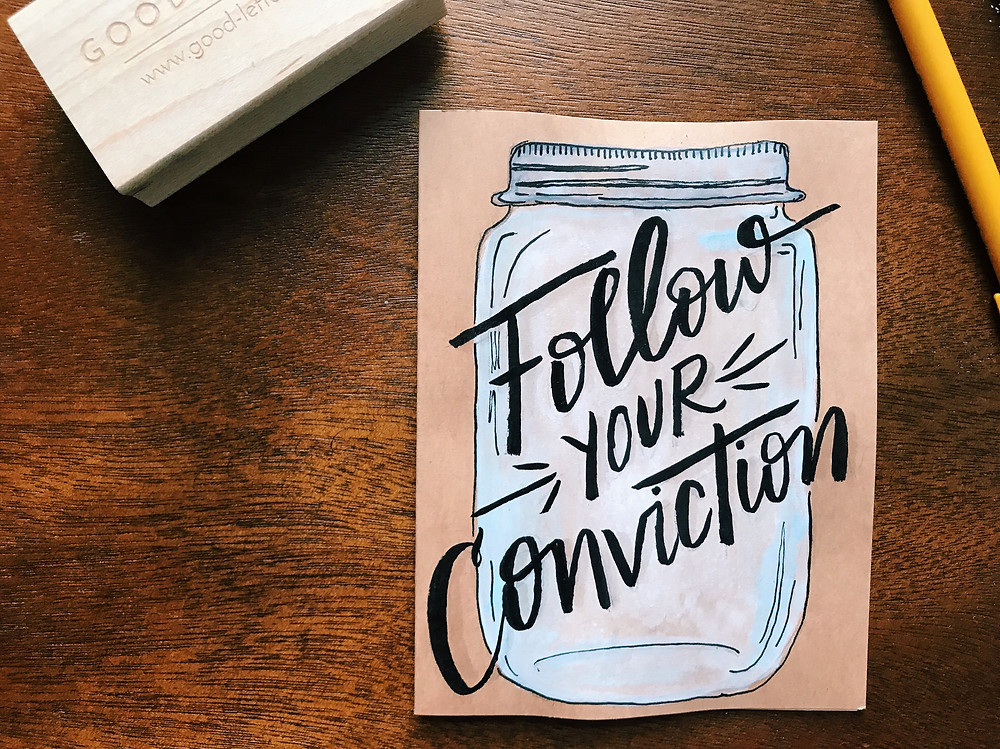 GOOD
www.good-lette
Follow
YOUR
Conviction